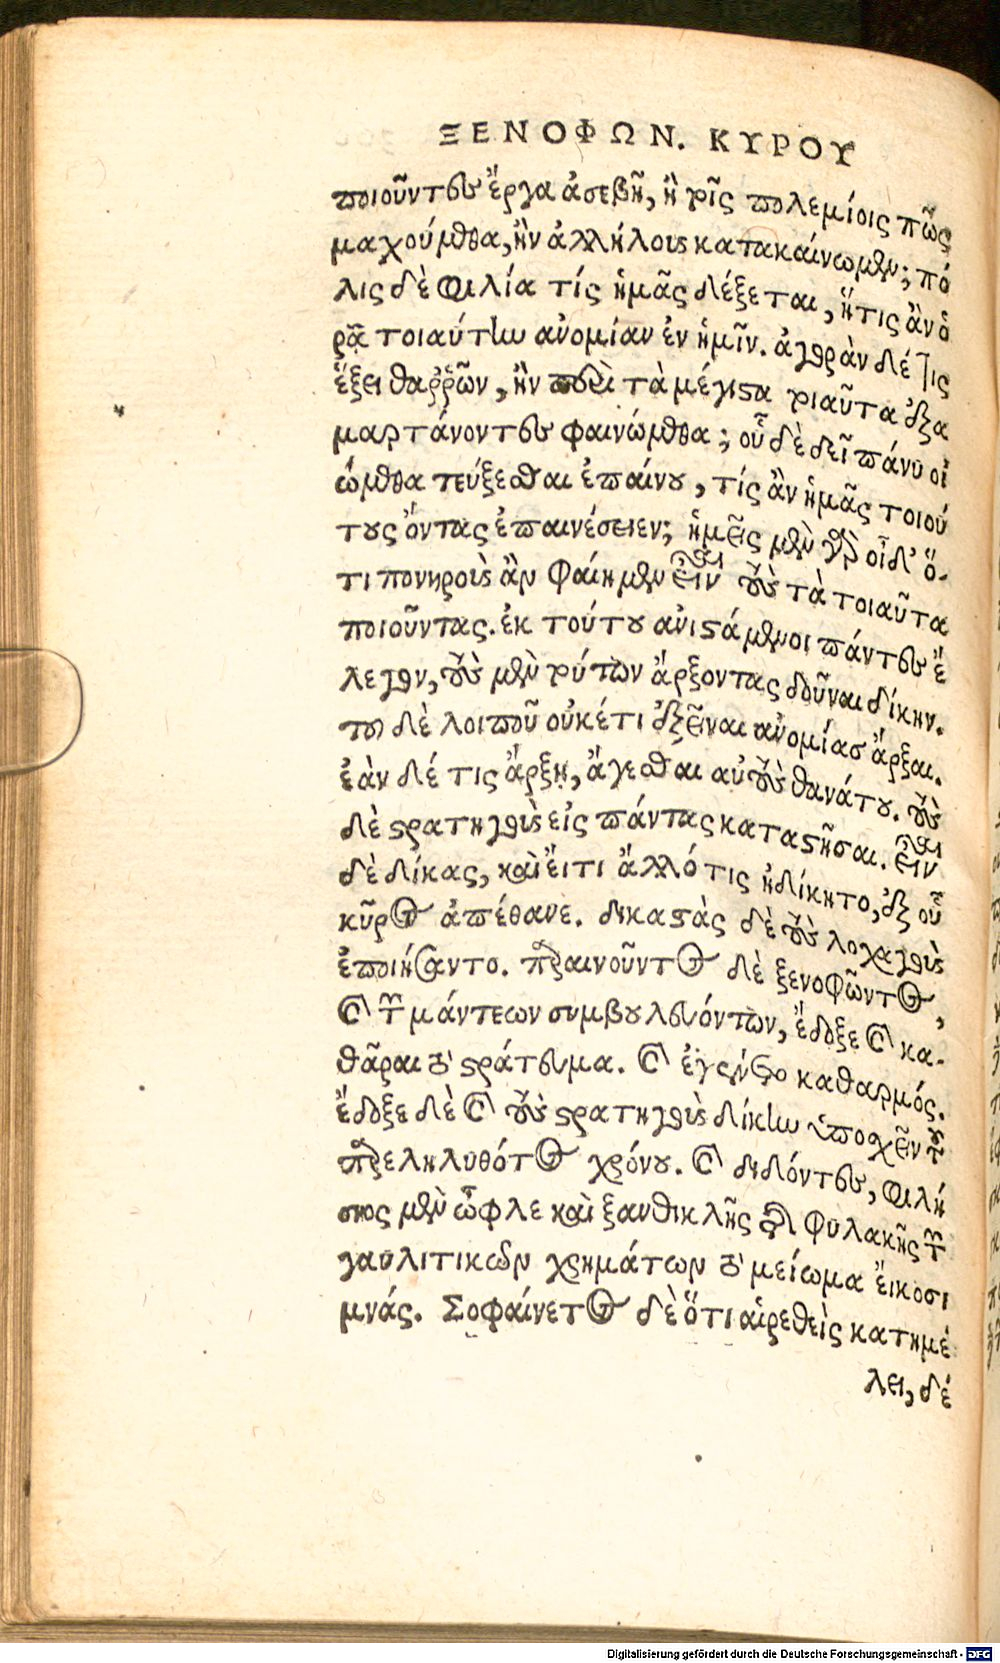 ΞΕΝΟΦΩΝ. ΚΥΡΟΥ
ποιοῦντες ἔργα ἀσεβῆ, ἢ τοῖς πολεμίοις πῶς
μαχούμεθα, ἢν ἀλλήλους κατακαίνωμεν; πό
λις δὲ φιλία τίς ἡμᾶς δέξεται, ἥτις ἂν ὁ
ρᾷ τοιαύτην ἀνομίαν ἐν ἡμῖν. ἀγορὰν δέ τις
ἕξει θαῤῥῶν, ἢν περὶ τὰ μέγιστα τοιαῦτα ἐξα
μαρτάνοντες φαινώμεθα; οὗ δὲ δεῖ πάνυ οἰ
ώμεθα τεύξεσθαι ἐπαίνου, τίς ἂν ἡμᾶς τοιού
τους ὄντας ἐπαινέσειεν; ἡμεῖς μὲν γὰρ οἶδ' ὅ-
τι πονηροὺς ἂν φαίημεν εἶναι τοὺς τὰ τοιαῦτα
ποιοῦντας. ἐκ τούτου ἀνιστάμενοι πάντες ἔ
λεγον, τοὺς μὲν τούτων ἄρξοντας δοῦναι δίκην.
τοῦ δὲ λοιποῦ οὐκέτι ἐξεῖναι ἀνομίας ἄρξαι.
ἐὰν δέ τις ἄρξῃ, ἄγεσθαι αὐτοὺς θανάτου. τοὺς
δὲ στρατηγοὺς εἰς πάντας καταστῆσαι. εἶναι
δὲ δίκας, καὶ εἴ τι ἄλλό τις ἠδίκητο, ἐξ οὗ
κῦρος ἀπέθανε. δικαστὰς δὲ τοὺς λοχαγοὺς
ἐποιήσαντο. παραινοῦντος δὲ ξενοφῶντος,
καὶ τῶν μάντεων συμβουλευόντων, ἔδοξε καὶ κα-
θᾶραι τὸ στράτευμα. καὶ ἐγένετο καθαρμός.
ἔδοξε δὲ καὶ τοὺς στρατηγοὺς δίκην ὑποσχεῖν τοῦ
παρεληλυθότος χρόνου. καὶ διδόντες, φιλή
σιος μὲν ὦφλε καὶ ξανθικλῆς διὰ φυλακῆς τῶν
γαυλιτικῶν χρημάτων τὸ μείωμα εἴκοσι
μνάς. Σοφαίνετος δὲ ὅτι αἱρεθεὶς κατημέ
λει, δέ
Digitalisierung gefördert durch die Deutsche Forschungsgemeinschaft - DFG